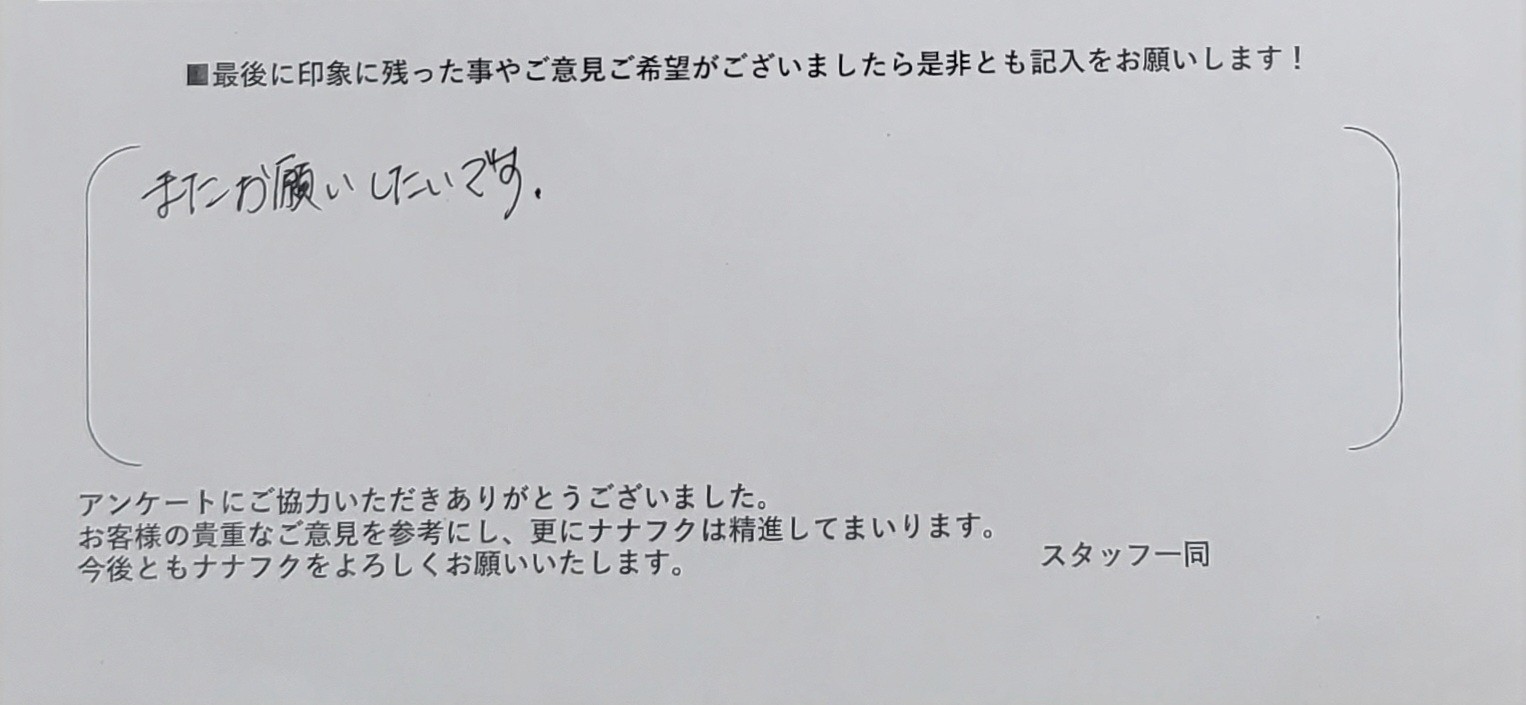 ■最後に印象に残った事やご意見ご希望がございましたら是非とも記入をお願いします！
またお願いしたいです.
アンケートにご協力いただきありがとうございました。
お客様の貴重なご意見を参考にし、更にナナフクは精進してまいります。
今後ともナナフクをよろしくお願いいたします。
スタッフ一同